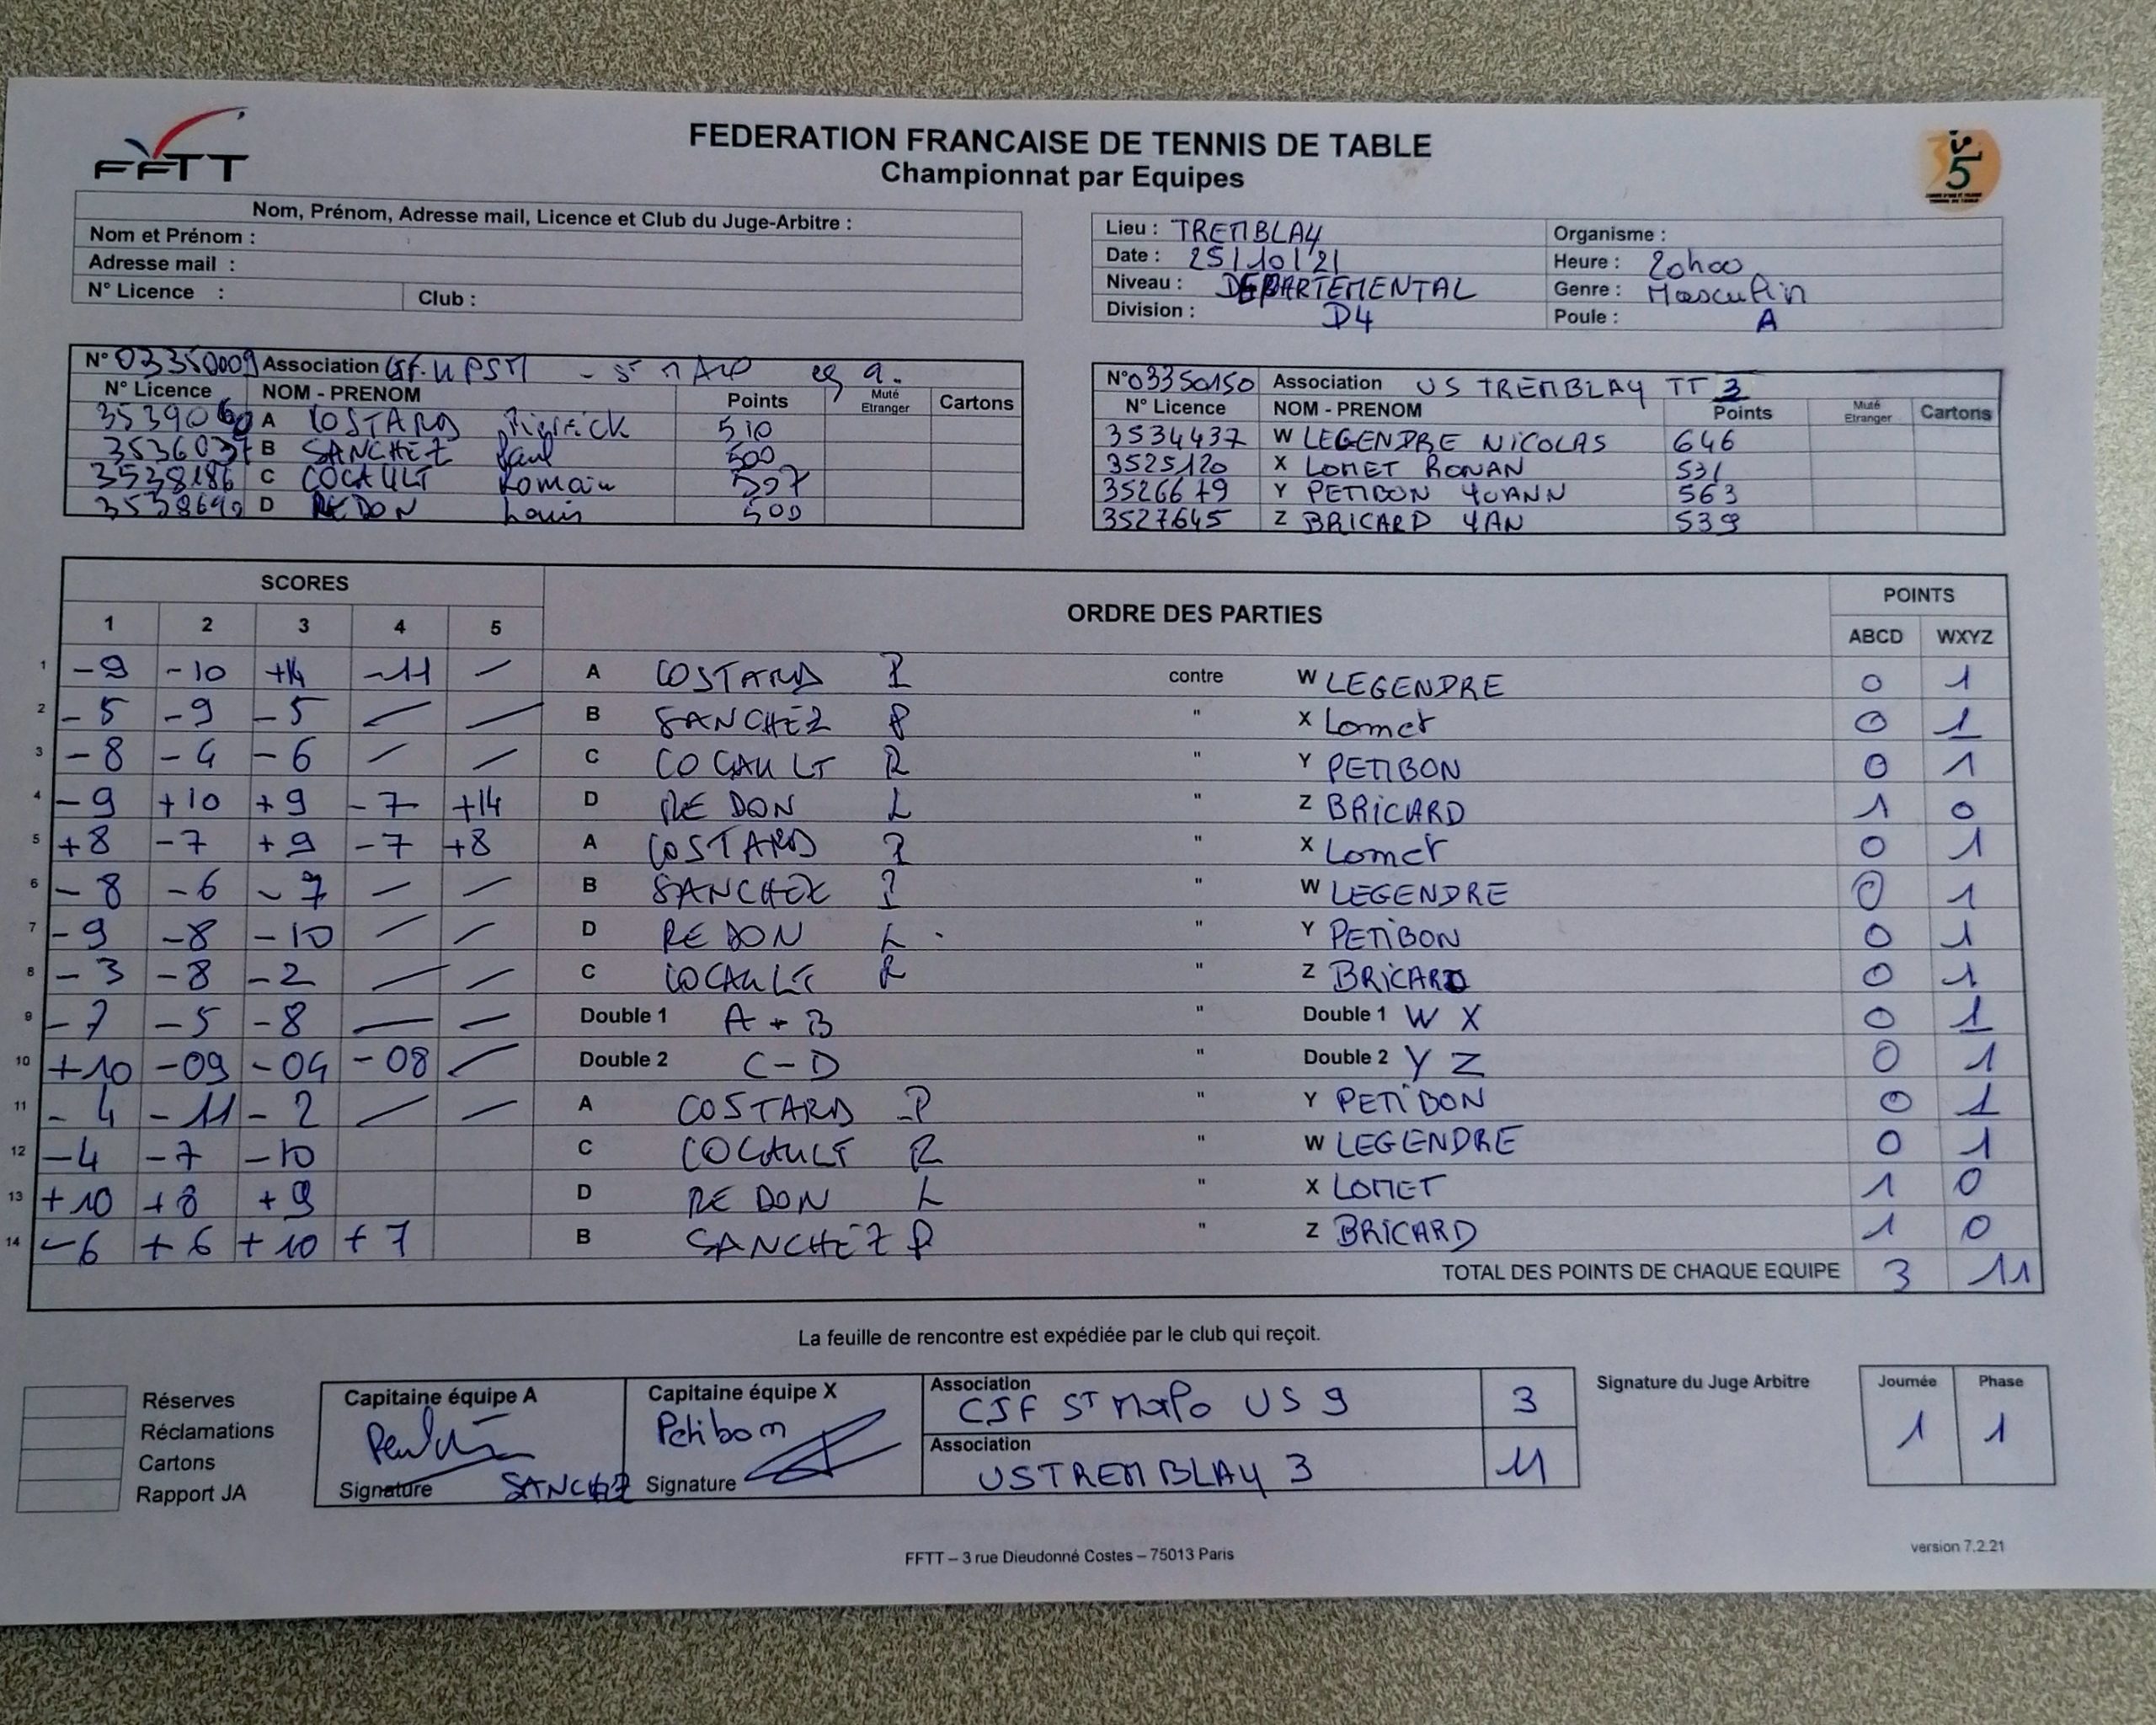 FFTT
FEDERATION FRANCAISE DE TENNIS DE TABLE
Championnat par Equipes
Nom, Prénom, Adresse mail, Licence et Club du Juge-Arbitre :
Nom et Prénom :
Adresse mail :
N° Licence : Club :
Lieu : TREMBLAY Organisme :
Date : 25/10/21 Heure : 20h00
Niveau : DEPARTEMENTAL Genre : Masculin
Division : D4 Poule : A
N° 03350009 Association
N° Licence NOM - PRENOM Points Muté Etranger Cartons
3539060 A COSTARD 510
3536037 B SANCHEZ Paul 500
3538186 C COCAULT Romain 507
3538690 D REDON Louis 500
N° 03350150 Association US TREMBLAY TT 3
N° Licence NOM - PRENOM Points Muté Etranger Cartons
3534437 W LEGENDRE NICOLAS 646
3525120 X LOMET RONAN 531
3526679 Y PETIBON YOANN 563
3527645 Z BRICARD YAN 539
SCORES ORDRE DES PARTIES POINTS
1 2 3 4 5 ABCD WXYZ
1 -9 -10 +14 -11 — A COSTARD P contre W LEGENDRE 0 1
2 -5 -9 -5 — — B SANCHEZ P " X Lomet 0 1
3 -8 -4 -6 — — C COCAULT R " Y PETIBON 0 1
4 -9 +10 +9 -7 +14 D REDON L " Z BRICARD 1 0
5 +8 -7 +9 -7 +8 A COSTARD P " X Lomet 0 1
6 -8 -6 -7 — — B SANCHEZ P " W LEGENDRE 0 1
7 -9 -8 -10 — — D REDON L " Y PETIBON 0 1
8 -3 -8 -2 — — C COCAULT R " Z BRICARD 0 1
9 -7 -5 -8 — — Double 1 A + B " Double 1 W X 0 1
10 +10 -09 -04 -08 — Double 2 C-D " Double 2 Y Z 0 1
11 -4 -11 -2 — — A COSTARD P " Y PETIBON 0 1
12 -4 -7 -10 C COCAULT R " W LEGENDRE 0 1
13 +10 +8 +9 D REDON L " X LOMET 1 0
14 -6 +6 +10 +7 B SANCHEZ P " Z BRICARD 1 0
TOTAL DES POINTS DE CHAQUE EQUIPE 3 11
La feuille de rencontre est expédiée par le club qui reçoit.
Réserves
Réclamations
Cartons
Rapport JA
Capitaine équipe A
Signature SANCHEZ
Capitaine équipe X
Petibon
Signature
Association
CJF St Malo US 9 3
Association
US TREMBLAY 3 11
Signature du Juge Arbitre
Journée Phase
1 1
FFTT – 3 rue Dieudonné Costes – 75013 Paris
version 7.2.21